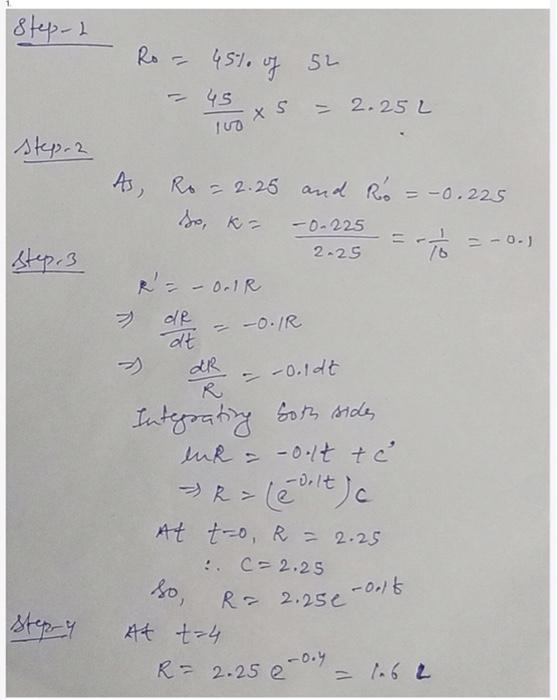 1.
Step-1
R₀ = 45% of 5L
= 45/100 × 5 = 2.25 L
Step-2
As, R₀ = 2.25 and R₀' = -0.225
So, K = -0.225/2.25 = -1/10 = -0.1
Step-3
R' = -0.1R
⇒ dR/dt = -0.1R
⇒ dR/R = -0.1dt
Integrating both sides
lnR = -0.1t + c'
⇒ R = (e^-0.1t)c
At t=0, R = 2.25
∴ C = 2.25
So, R = 2.25e^-0.1t
Step-4 At t=4
R = 2.25 e^-0.4 = 1.6 L